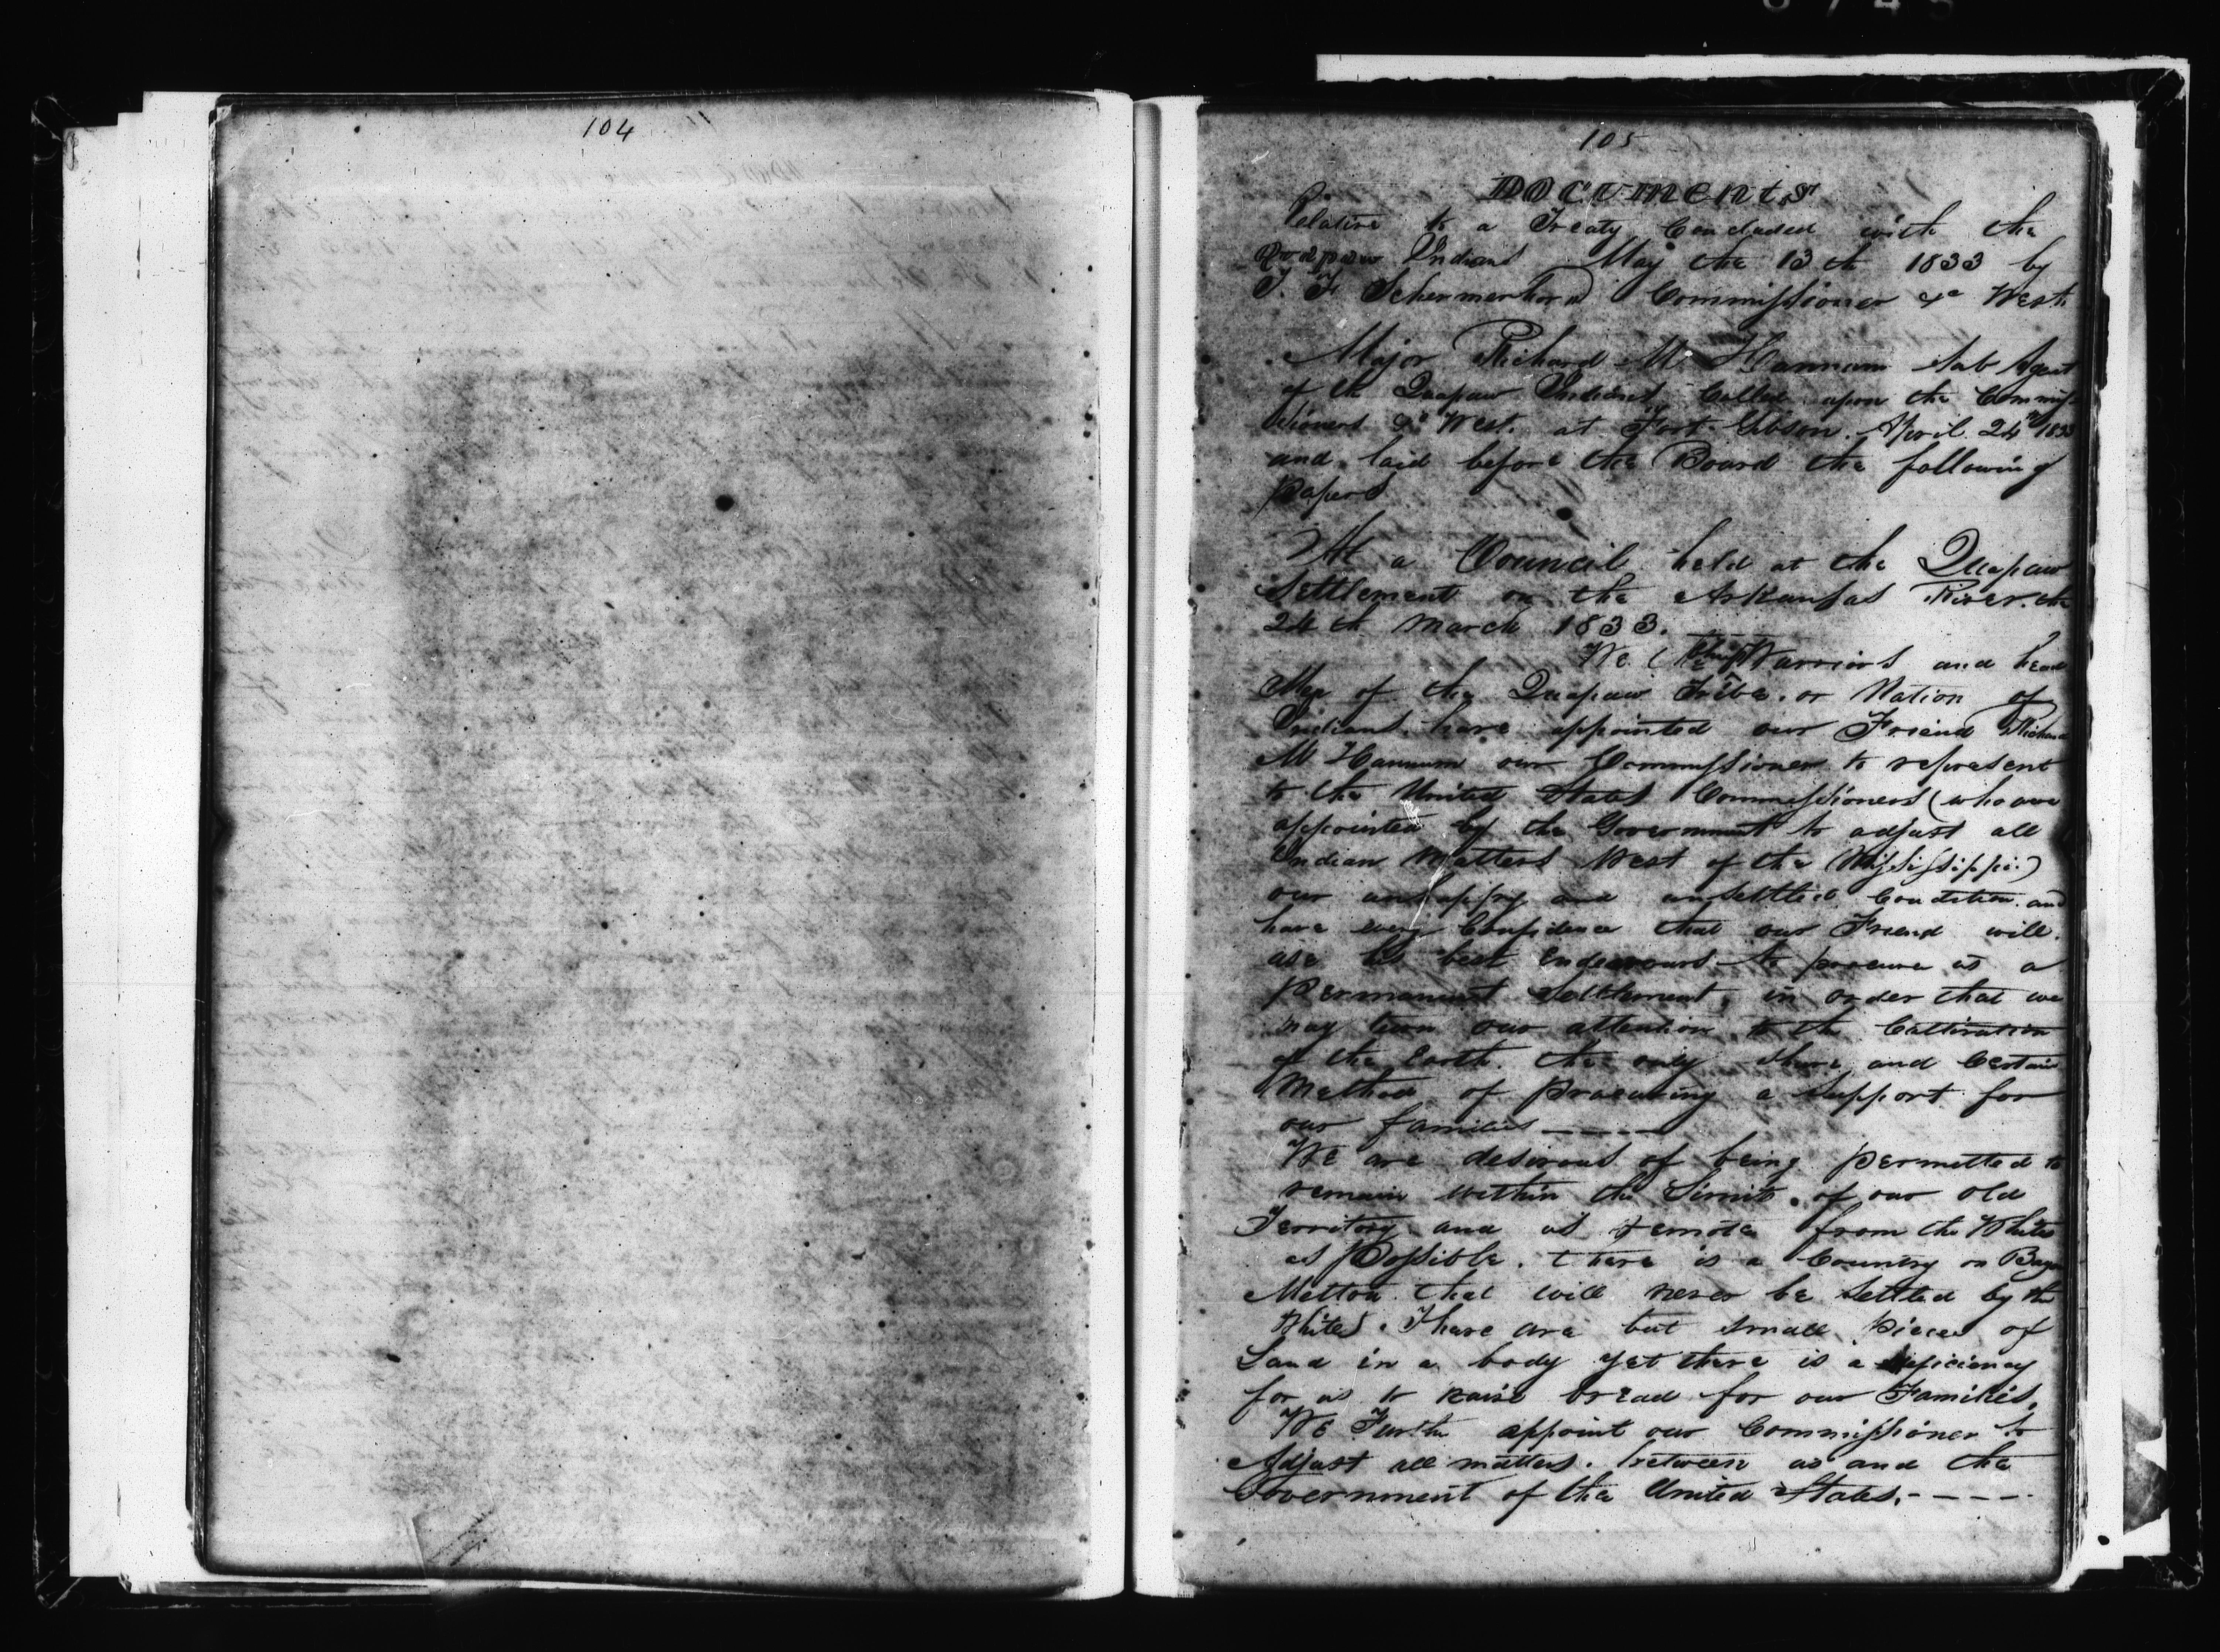 104
105
DOCUMENTS
Relative to a Treaty Concluded with the
Quapaw Indians May the 13th 1833 by
J. F Schermerhorn Commissioner &c West
Major Richard M Hannum Sub Agent
of the Quapaw Indians Called upon the Commis
sioners &c West. at Fort Gibson April 24th 1833
and laid before the Board the following
papers
At a Council held at the Quapaw
Settlement on the Arkansas River. the
24th March 1833.
We (the Chiefs Warriors and head
Men of the Quapaw Tribe. or Nation of
Indians. have appointed our Friend Richard
M Hannum our Commissioner to represent
to the United States Commissioners (who are
appointed by the Government to adjust all
Indian Matters West of the Mississippi)
our unhappy and unsettled Condition. and
have every Confidence that our Friend will.
use his best Endeavours to procure us a
Permanent Settlement, in order that we
may turn our attention to the Cultivation
of the Earth. the only shure and Certain
Method of procuring a support for
our families -----
We are desirous of being permitted to
remain within the Limits of our old
Territory and as remote from the Whites
as Possible. there is a Country on Bayou
Mettoa that will never be settled by the
Whites. There are but small pieces of
Land in a body yet there is a
for us to raise bread for our Families.
We Further appoint our Commissioner to
Adjust all matters. between us and the
Government of the United States.----